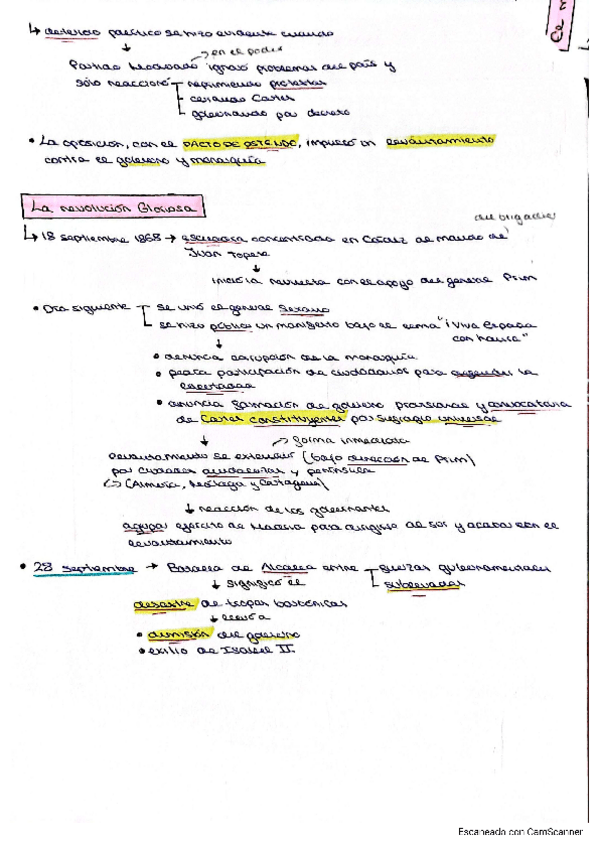 ↳ deterioro político se hizo evidente cuando
↓
en el poder
Partido Moderado ignoró problemas del país y
sólo reaccionó reprimiendo protestas
- cerrando Cortes
- gobernando por decreto
• La oposición, con el PACTO DE OSTENDE, impulsó un levantamiento
contra el gobierno y monarquía
La revolución Gloriosa
del brigadier
↳ 18 septiembre 1868 → escuadra concentrada en Cádiz al mando de
Juan Topete
↓
inició la revuelta con el apoyo del general Prim
• Día siguiente se unió el general Serrano
se hizo público un manifiesto bajo el lema "¡Viva España
con honra"
↓
• denuncia corrupción de la monarquía
• pedía participación de ciudadanos para defender la
libertad
• anuncia formación de gobierno provisional y convocatoria
de Cortes constituyentes por sufragio universal
↓ → forma inmediata
levantamiento se extendió (bajo dirección de Prim)
por ciudades andaluzas y península
↳ (Almería, Málaga y Cartagena)
↓ reacción de los gobernantes
agrupa ejército de Madrid para dirigirse al sur y acabar con el
levantamiento
• 28 septiembre → Batalla de Alcolea entre fuerzas gubernamentales
sublevadas
↓ significó el
desastre de tropas borbónicas
↓
• dimisión del gobierno
• exilio de Isabel II.
Escaneado con CamScanner